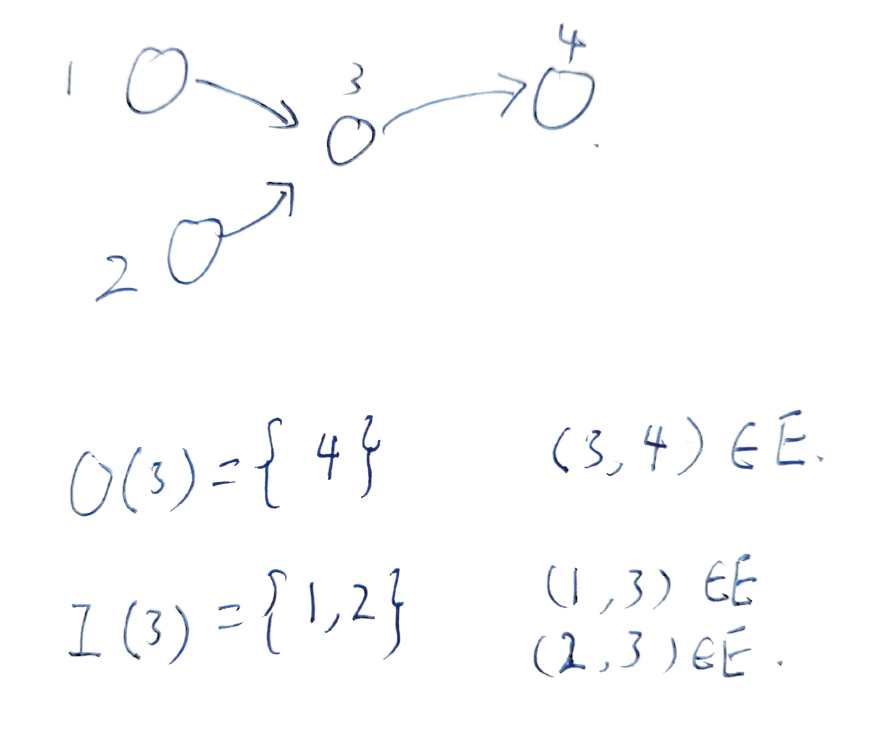 1
3
4
2
O(3) = { 4 }
(3, 4) ∈ E.
I (3) = { 1, 2 }
(1, 3) ∈ E
(2, 3) ∈ E.